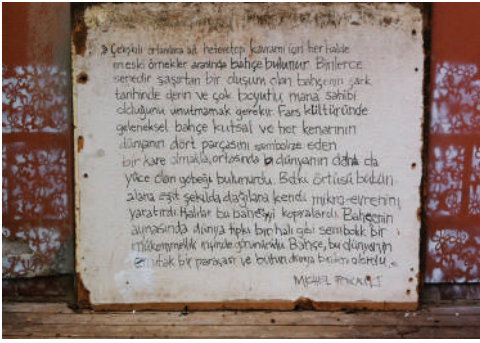 » Çelişkili ortamlara ait heterotopi kavramı için her halde
en eski örnekler arasında bahçe bulunur. Binlerce
senedir şaşırtan bir düşüm olan bahçenin şark
tarihinde derin ve çok boyutlu mana sahibi
olduğunu unutmamak gerekir. Fars kültüründe
geleneksel bahçe kutsal ve her kenarının
dünyanın dört parçasını sembolize eden
bir kare olmakla, ortasında bu dünyanın daha da
yüce olan göbeği bulunurdu. Bitki örtüsü bütün
alana eşit şekilde dağılara kendi mikro-evrenini
yaratırdı. Halılar bu bahçeyi kopralardı. Bahçenin
aynasında dünya tıpkı bir halı gibi sembolik bir
mükemmellik içinde görünürdü. Bahçe, bu dünyanın
ufak bir parçası ve bütün dünya birden olurdu. «
MICHEL FOUCAULT